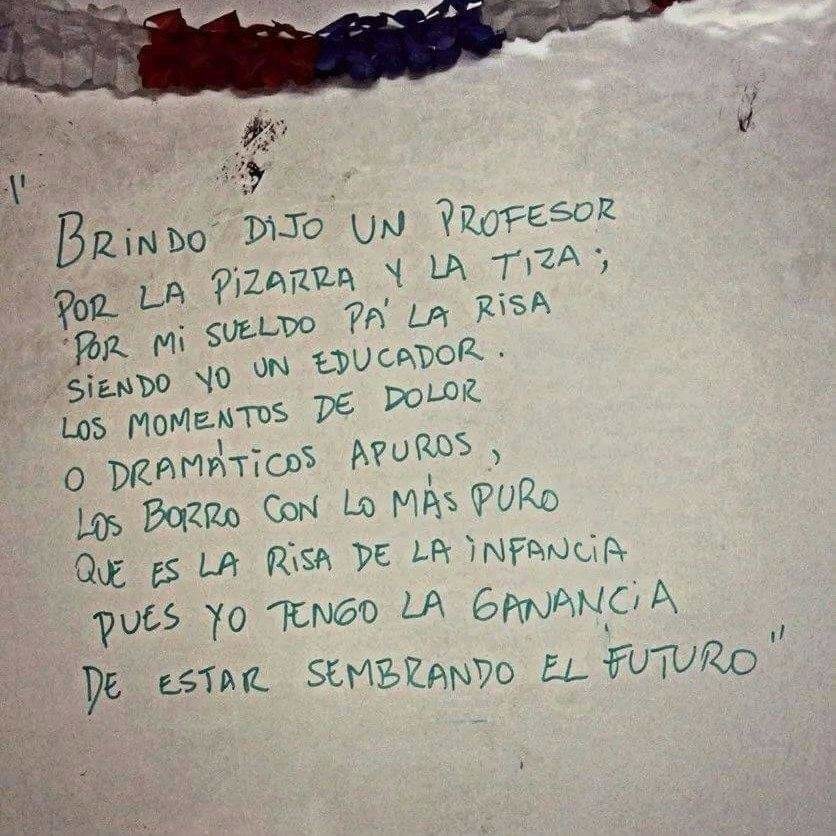 "
BRINDO DIJO UN PROFESOR
POR LA PIZARRA Y LA TIZA;
POR MI SUELDO PA' LA RISA
SIENDO YO UN EDUCADOR.
LOS MOMENTOS DE DOLOR
O DRAMÁTICOS APUROS,
LOS BORRO CON LO MÁS PURO
QUE ES LA RISA DE LA INFANCIA
PUES YO TENGO LA GANANCIA
DE ESTAR SEMBRANDO EL FUTURO"